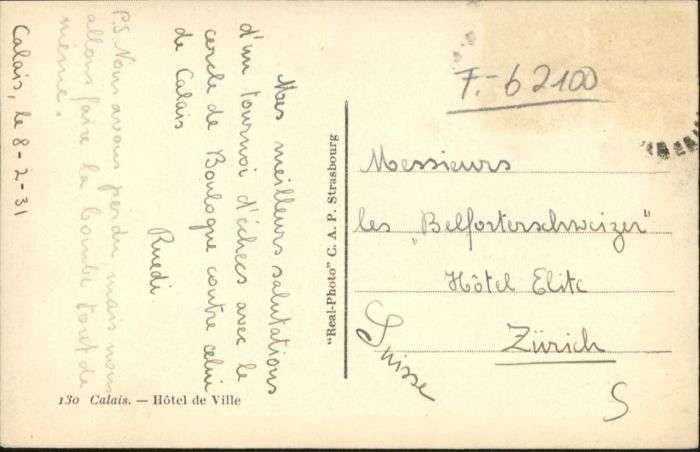 Calais, le 8-2-31
Mes meilleurs salutations
d'un tournoi d'échecs avec le
cercle de Boulogne contre celui
de Calais
Ruedi
P.S Nous avons perdu, mais nous
allons faire la bombe tout de
même.
130 Calais. — Hôtel de Ville
"Real-Photo" C. A. P. Strasbourg
F.-62100
Messieurs
les „Belforterschweizer"
Hôtel Elite
Zürich
Suisse
S